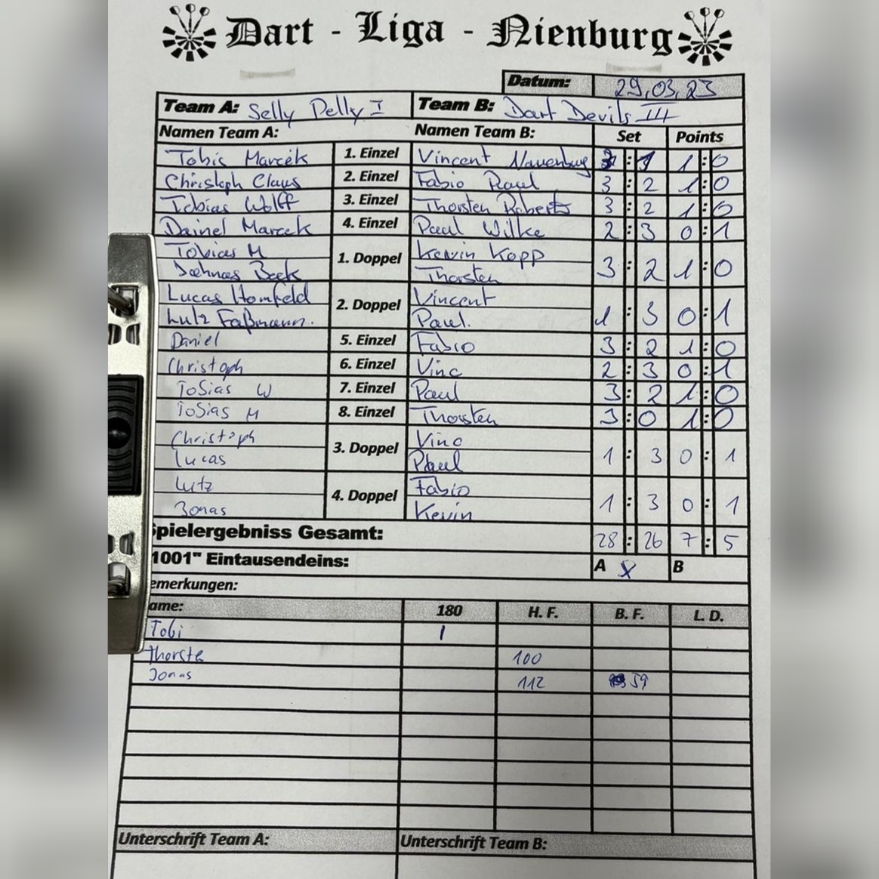 Dart - Liga - Nienburg
Datum: 29.03.23
Team A: Selly Pelly I Team B: Dart Devils III
Namen Team A: Namen Team B: Set Points
Tobis Marcék 1. Einzel Vincent : 1 1 : 0
Christoph Claus 2. Einzel Fabio Raul 3 : 2 1 : 0
Tobias Wolff 3. Einzel Thorsten Roberts 3 : 2 1 : 0
Dainel Marcek 4. Einzel Paul Wilke 2 : 3 0 : 1
Tobias M Kevin Kopp
1. Doppel 3 : 2 1 : 0
Beek Thorsten
Lucas Homfeld Vincent
2. Doppel 1 : 3 0 : 1
Lutz Faßmann. Paul.
Daniel 5. Einzel Fabio 3 : 2 1 : 0
Christoph 6. Einzel Vinc 2 : 3 0 : 1
Tobias W 7. Einzel Paul 3 : 2 1 : 0
Tobias M 8. Einzel Thorsten 3 : 0 1 : 0
Christoph Vinc
3. Doppel 1 : 3 0 : 1
Lucas Paul
Lutz Fabio
4. Doppel 1 : 3 0 : 1
Jonas Kevin
Spielergebniss Gesamt: 28 : 26 7 : 5
1001" Eintausendeins: A X B
emerkungen:
ame: 180 H. F. B. F. L. D.
Tobi I
Thorste 100
Jonas 112 59
Unterschrift Team A: Unterschrift Team B: